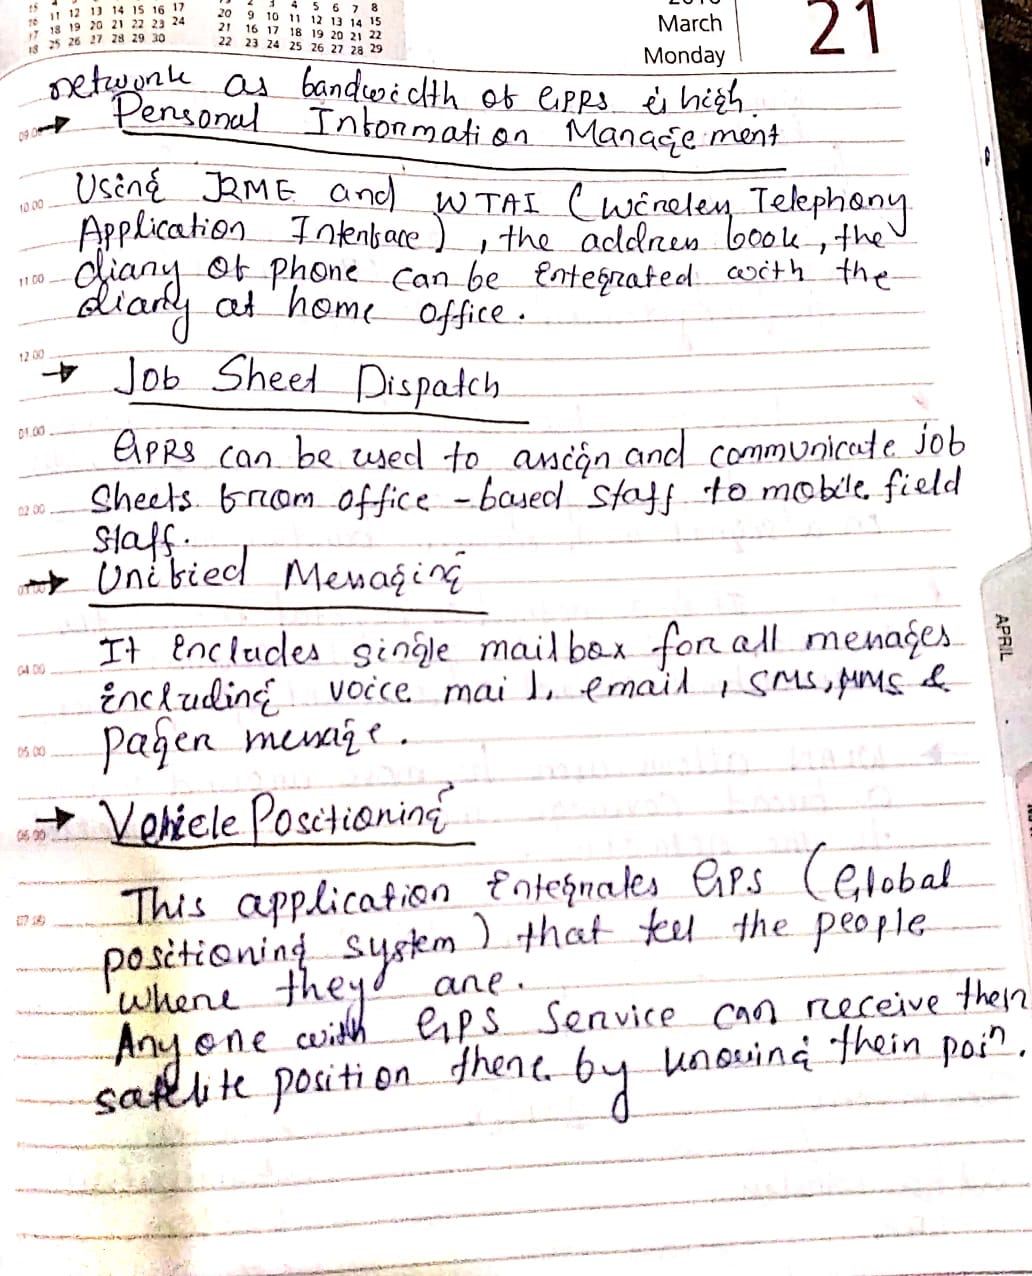 11 12 13 14 15 16 17
18 19 20 21 22 23 24
25 26 27 28 29 30
2 3 4 5 6 7 8
20 9 10 11 12 13 14 15
21 16 17 18 19 20 21 22
22 23 24 25 26 27 28 29
March
Monday
21
network as bandwidth of GPRS is high.
→ Personal Information Management
Using J2ME and WTAI (wireless Telephony
Application Interface), the address book, the
diary of phone can be integrated with the
diary at home office.
→ Job Sheet Dispatch
GPRS can be used to assign and communicate job
Sheets from office-based staff to mobile field
staff.
→ Unified Messaging
It includes single mailbox for all messages
including voice mail, email, SMS, MMS &
pager message.
→ Vehicle Positioning
This application integrates GPS (Global
positioning system) that tell the people
where they are.
Anyone with GPS Service can receive their
satellite position there by knowing their posn.
10.00
11.00
12.00
01.00
02.00
04.00
05.00
06.00
07.00
APRIL